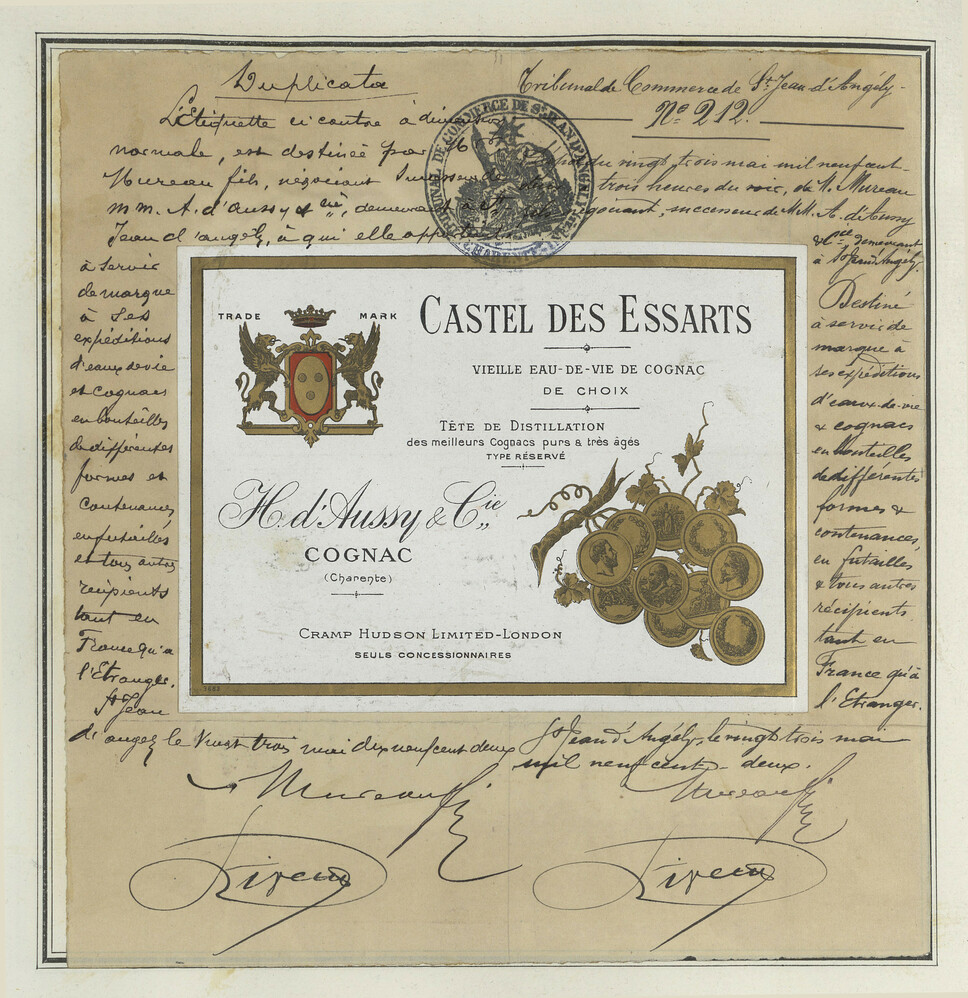 Duplicata
L'Etiquette ci contre à dimension
normale, est destinée par M.
Mureau fils, négociant Successeur de
mm. A. d'aussy & Cie, demeurant à St
Jean d'angely, à qui elle appartient
à servir
de marque
à ses
expéditions
d'eaux de vie
et cognacs
en bouteilles
de différentes
formes et
contenances
en futailles
et tous autres
récipients
tant en
France qu'à
l'Etranger.
St Jean
d'angely le vingt trois mai dix neuf cent deux
Mureau fils
Tribunal de Commerce de St Jean d'Angély
No 212.
du vingt trois mai mil neuf cent
deux trois heures du soir, de M. Mureau
fils négociant, successeur de MM. A. d'Aussy
& Cie demeurant
à St Jean d'Angély.
Destiné
à servir de
marque à
ses expéditions
d'eaux-de-vie
& cognacs
en bouteilles
de différentes
formes &
contenances,
en futailles
& tous autres
récipients
tant en
France qu'à
l'Etranger.
St Jean d'Angély, le vingt trois mai
mil neuf cent-deux.
Mureau fils
TRIBUNAL DE COMMERCE DE St JEAN D'ANGELY
TRADE MARK
CASTEL DES ESSARTS
VIEILLE EAU-DE-VIE DE COGNAC
DE CHOIX
TÊTE DE DISTILLATION
des meilleurs Cognacs purs & très âgés
TYPE RÉSERVÉ
H. d'Aussy & Cie
COGNAC
(Charente)
CRAMP HUDSON LIMITED-LONDON
SEULS CONCESSIONNAIRES